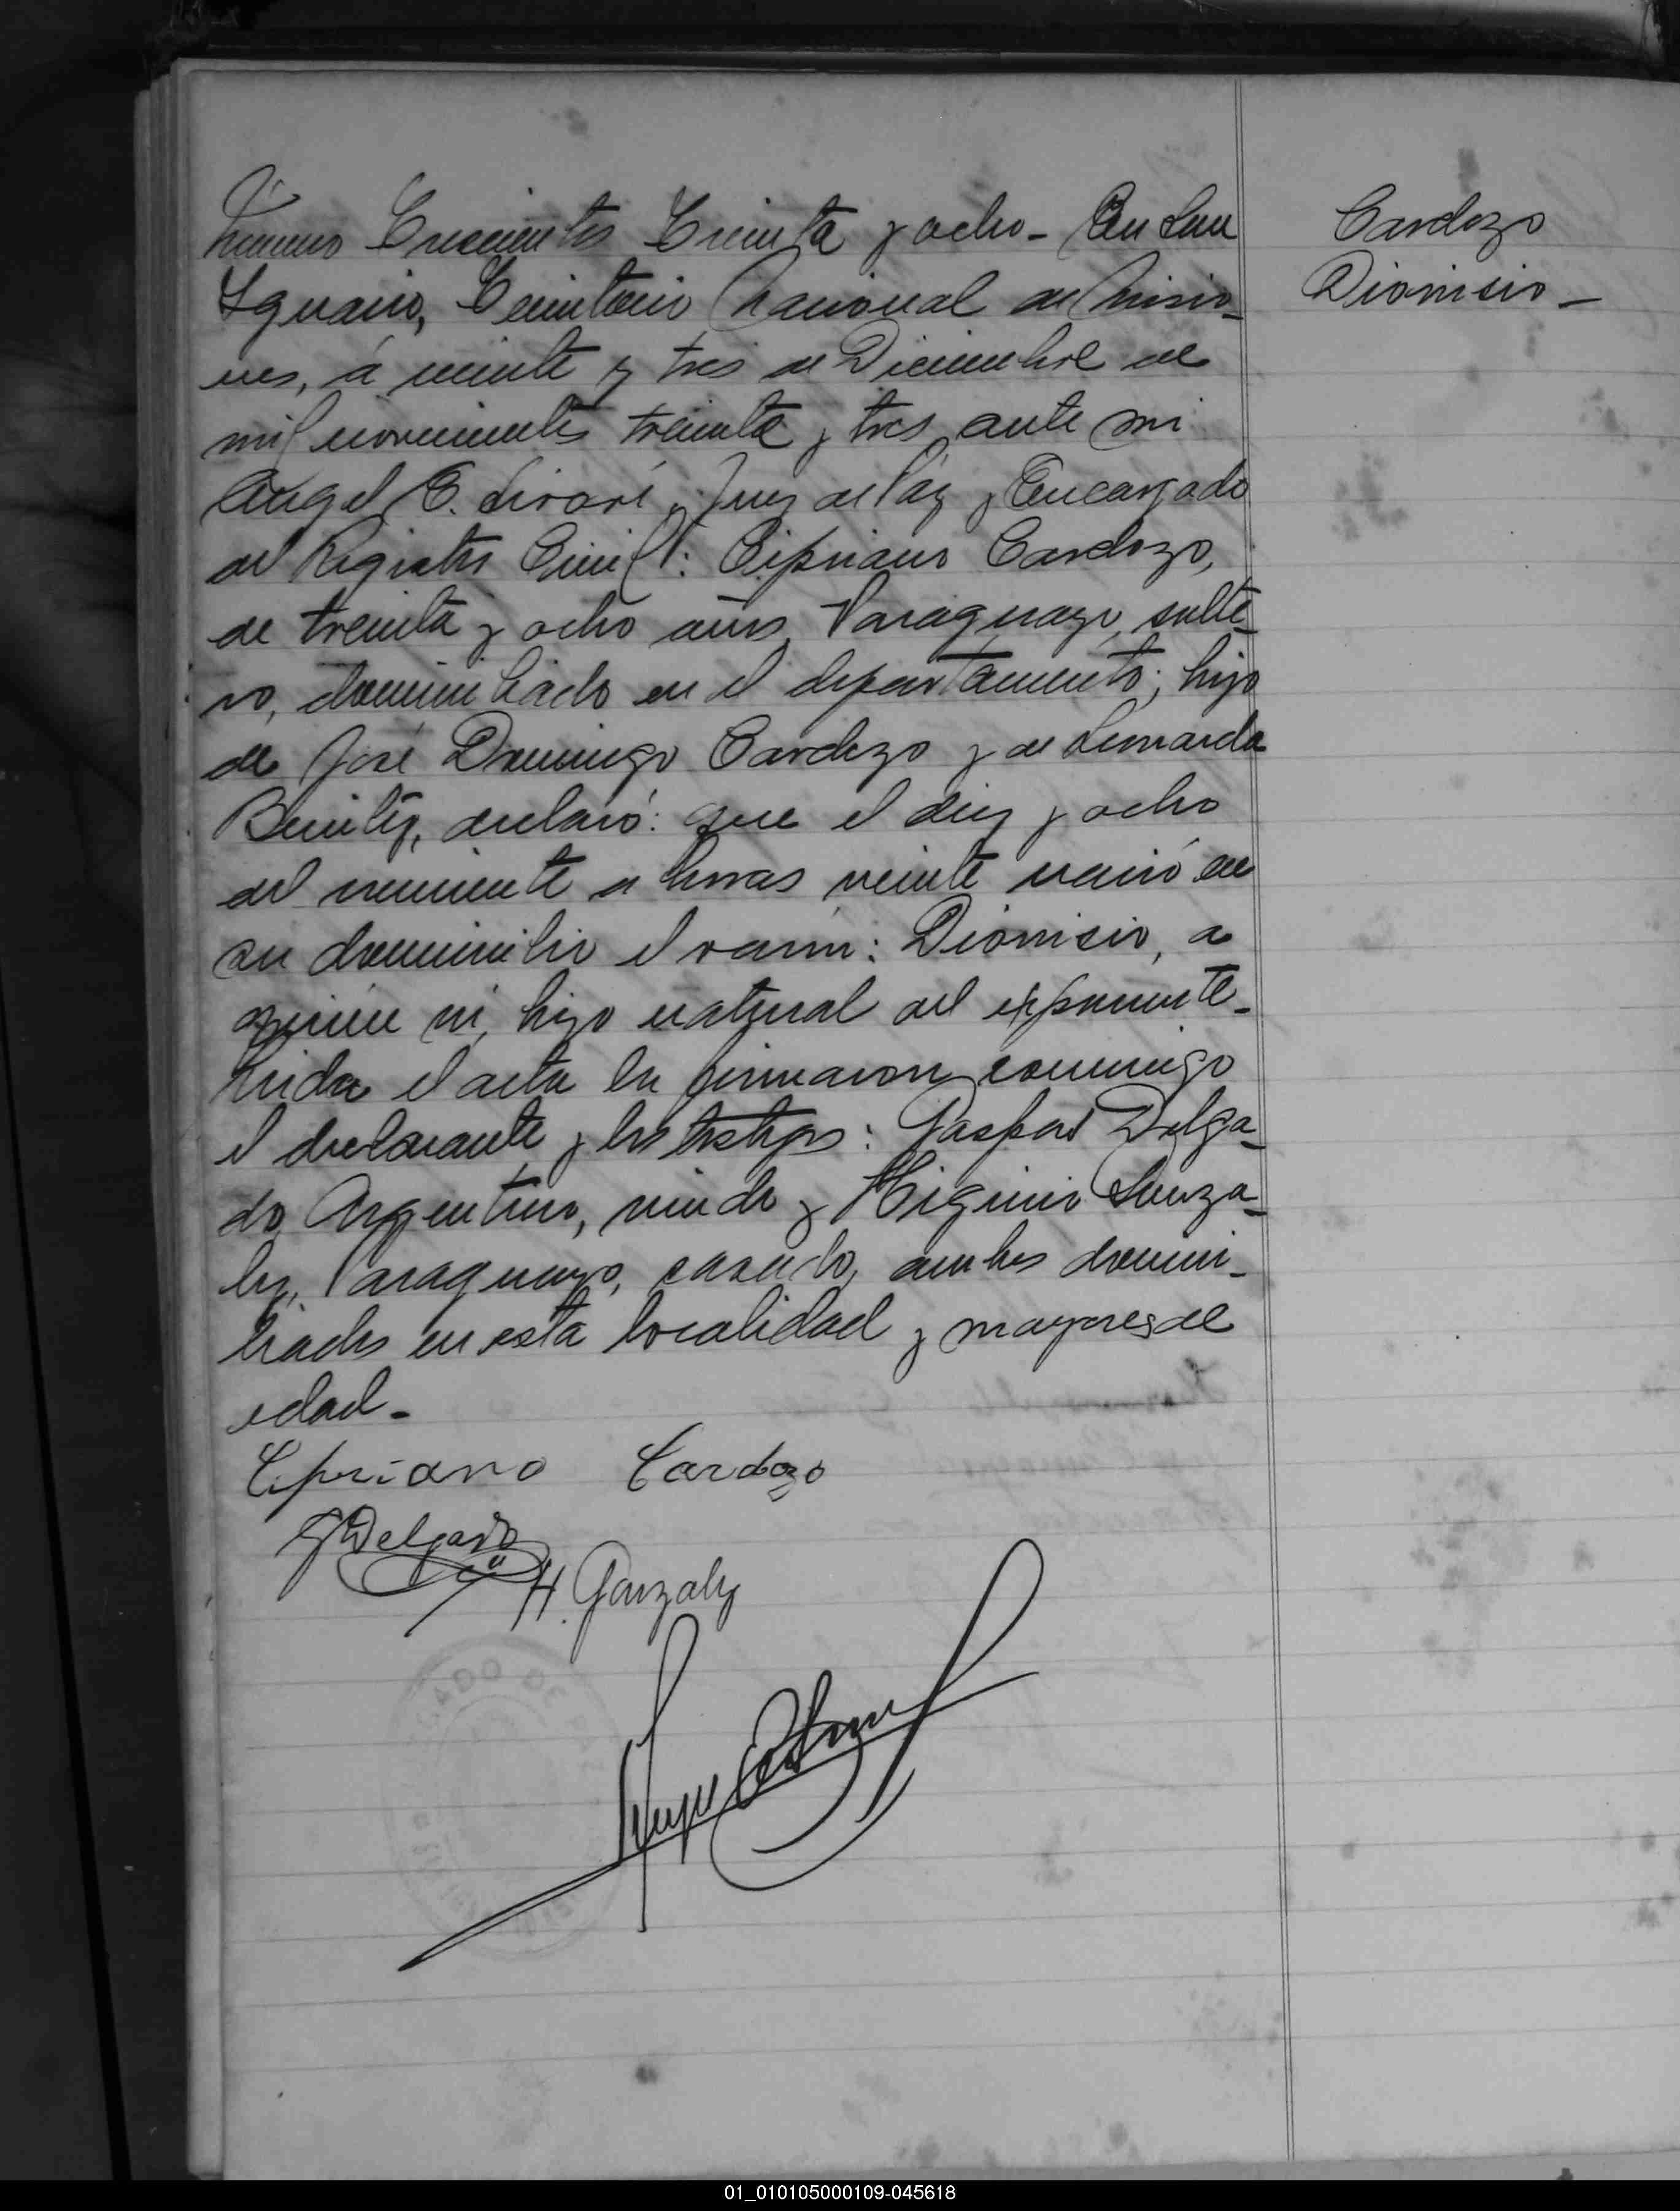 Número Trescientos Treinta y ocho - En San
Cardozo
Ignacio, Territorio Nacional de Misio-
Dionisio -
nes, á veinte y tres de Diciembre de
mil novecientos treinta y tres, ante mi
Angel E. Juez de Páz y Encargado
del Registro Civil: Cipriano Cardozo,
de treinta y ocho años, Paraguayo, solte-
ro, domiciliado en el departamento; hijo
de José Domingo Cardozo y de Leonarda
Benitez, declaró: que el diez y ocho
del corriente a horas veinte nació en
su domicilio el varón: Dionisio, a
quien vi, hijo natural del exponente -
Leida el acta la firmaron conmigo
el declarante y los testigos: Gaspar Delga-
do, Argentino, viudo y Higinio Gonza-
lez, Paraguayo, casado, ambos domici-
liados en esta localidad y mayores de
edad -
Cipriano Cardozo
G Delgado
H. Gonzalez
01_010105000109-045618